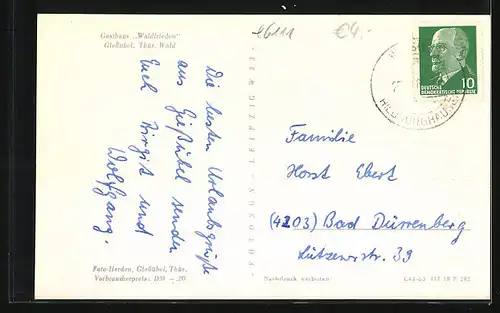 Gasthaus „Waldfrieden“
Gießübel, Thür. Wald
e6111
€4,-
Die besten Urlaubsgrüße
aus Gießübel senden
Euch Birgit und
Wolfgang.
Foto-Herden, Gießübel, Thür.
Verbraucherpreis: DM -.20
Nachdruck verboten
DEUTSCHE
DEMOKRATISCHE REPUBLIK
10
HILDBURGHAUSEN
Familie
Horst Ebert
(4203) Bad Dürrenberg
Lützenerstr. 39